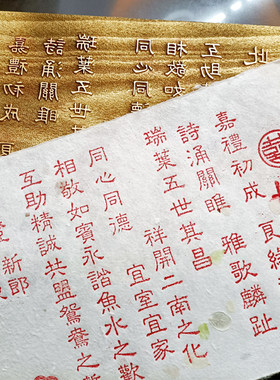 嘉禮初成
詩涌關雎
瑞葉五世
同心同德
相敬如
互助
此
囍
嘉禮初成 雅歌麟趾
詩涌關雎 祥開二南之化
瑞葉五世其昌 宜室宜家
同心同德
相敬如賓永諧魚水之歡
互助精誠共盟鴛鴦之
新郎